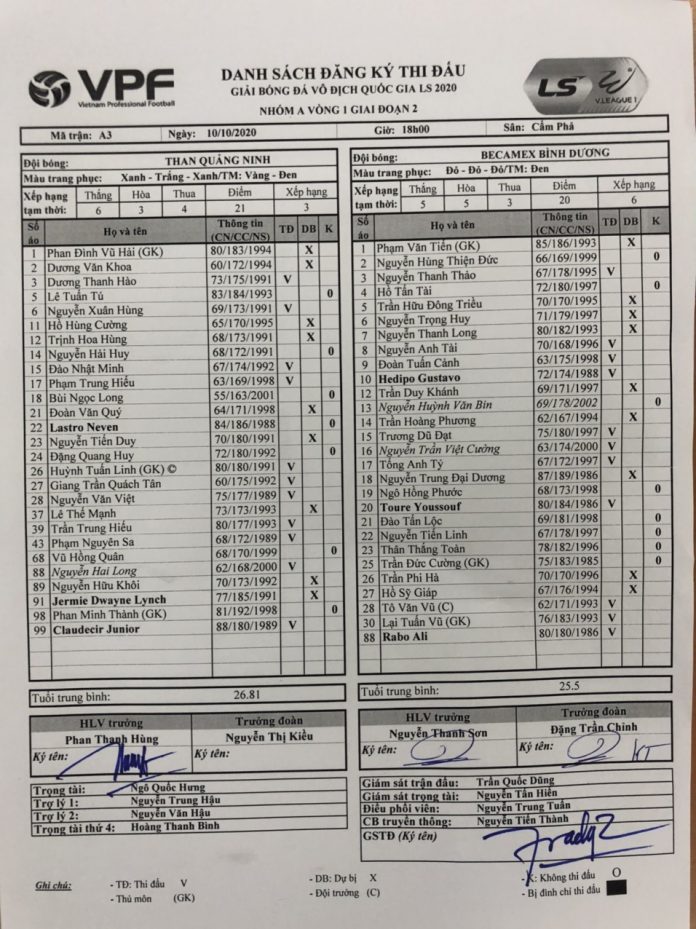 VPF
Vietnam Professional Football
DANH SÁCH ĐĂNG KÝ THI ĐẤU
GIẢI BÓNG ĐÁ VÔ ĐỊCH QUỐC GIA LS 2020
NHÓM A VÒNG 1 GIAI ĐOẠN 2
LS V.LEAGUE 1
Mã trận: A3 Ngày: 10/10/2020 Giờ: 18h00 Sân: Cẩm Phả
Đội bóng: THAN QUẢNG NINH
Màu trang phục: Xanh - Trắng - Xanh/TM: Vàng - Đen
Xếp hạng tạm thời: Thắng Hòa Thua Điểm Xếp hạng
6 3 4 21 3
Số áo Họ và tên Thông tin (CN/CC/NS) TĐ DB K
1 Phan Đình Vũ Hải (GK) 80/183/1994 X
2 Dương Văn Khoa 60/172/1994 X
3 Dương Thanh Hào 73/175/1991 V
5 Lê Tuấn Tú 83/184/1993 0
6 Nguyễn Xuân Hùng 69/173/1991 V
11 Hồ Hùng Cường 65/170/1995 X
12 Trịnh Hoa Hùng 68/173/1991 X
14 Nguyễn Hải Huy 68/172/1991 0
15 Đào Nhật Minh 67/174/1992 V
17 Phạm Trung Hiếu 63/169/1998 V
18 Bùi Ngọc Long 55/163/2001 0
21 Đoàn Văn Quý 64/171/1998 X
22 Lastro Neven 84/186/1988 0
23 Nguyễn Tiến Duy 70/180/1991 X
24 Đặng Quang Huy 72/180/1992 0
26 Huỳnh Tuấn Linh (GK) © 80/180/1991 V
27 Giang Trần Quách Tân 60/175/1992 V
28 Nguyễn Văn Việt 75/177/1989 V
37 Lê Thế Mạnh 73/173/1993 X
39 Trần Trung Hiếu 80/177/1993 V
43 Phạm Nguyên Sa 68/172/1989 V
68 Vũ Hồng Quân 68/170/1999 0
88 Nguyễn Hai Long 62/168/2000 V
89 Nguyễn Hữu Khôi 70/173/1992 X
91 Jermie Dwayne Lynch 77/185/1991 X
98 Phan Minh Thành (GK) 81/192/1998 0
99 Claudecir Junior 88/180/1989 V
Tuổi trung bình: 26.81
HLV trưởng Trưởng đoàn
Phan Thanh Hùng Nguyễn Thị Kiều
Ký tên: Ký tên:
Trọng tài: Ngô Quốc Hưng
Trợ lý 1: Nguyễn Trung Hậu
Trợ lý 2: Nguyễn Văn Hậu
Trọng tài thứ 4: Hoàng Thanh Bình
Đội bóng: BECAMEX BÌNH DƯƠNG
Màu trang phục: Đỏ - Đỏ - Đỏ/TM: Đen
Xếp hạng tạm thời: Thắng Hòa Thua Điểm Xếp hạng
5 5 3 20 6
Số áo Họ và tên Thông tin (CN/CC/NS) TĐ DB K
1 Phạm Văn Tiến (GK) 85/186/1993 X
2 Nguyễn Hùng Thiện Đức 66/169/1999 0
3 Nguyễn Thanh Thảo 67/178/1995 V
4 Hồ Tấn Tài 72/180/1997 0
5 Trần Hữu Đông Triều 70/170/1995 X
6 Nguyễn Trọng Huy 71/179/1997 X
7 Nguyễn Thanh Long 80/182/1993 X
8 Nguyễn Anh Tài 70/168/1996 V
9 Đoàn Tuấn Cảnh 63/175/1998 V
10 Hedipo Gustavo 72/174/1988 V
12 Trần Duy Khánh 69/171/1997 X
13 Nguyễn Huỳnh Văn Bin 69/178/2002 0
14 Trần Hoàng Phương 62/167/1994 X
15 Trương Dũ Đạt 75/180/1997 V
16 Nguyễn Trần Việt Cường 63/174/2000 V
17 Tống Anh Tỷ 67/172/1997 V
18 Nguyễn Trung Đại Dương 87/189/1986 X
19 Ngô Hồng Phước 68/173/1998 0
20 Toure Youssouf 80/184/1986 V
21 Đào Tấn Lộc 69/181/1998 0
22 Nguyễn Tiến Linh 67/178/1997 0
23 Thân Thắng Toàn 78/182/1996 0
25 Trần Đức Cường (GK) 75/183/1985 0
26 Trần Phi Hà 70/170/1996 X
27 Hồ Sỹ Giáp 67/176/1994 X
28 Tô Văn Vũ (C) 62/171/1993 V
30 Lại Tuấn Vũ (GK) 76/183/1993 V
88 Rabo Ali 80/180/1986 V
Tuổi trung bình: 25.5
HLV trưởng Trưởng đoàn
Nguyễn Thanh Sơn Đặng Trần Chỉnh
Ký tên: Ký tên:
Giám sát trận đấu: Trần Quốc Dũng
Giám sát trọng tài: Nguyễn Tấn Hiền
Điều phối viên: Nguyễn Trung Tuấn
CB truyền thông: Nguyễn Tiến Thành
GSTĐ (Ký tên)
Ghi chú: - TĐ: Thi đấu V - DB: Dự bị X - K: Không thi đấu O
- Thủ môn (GK) - Đội trưởng (C) - Bị đình chỉ thi đấu